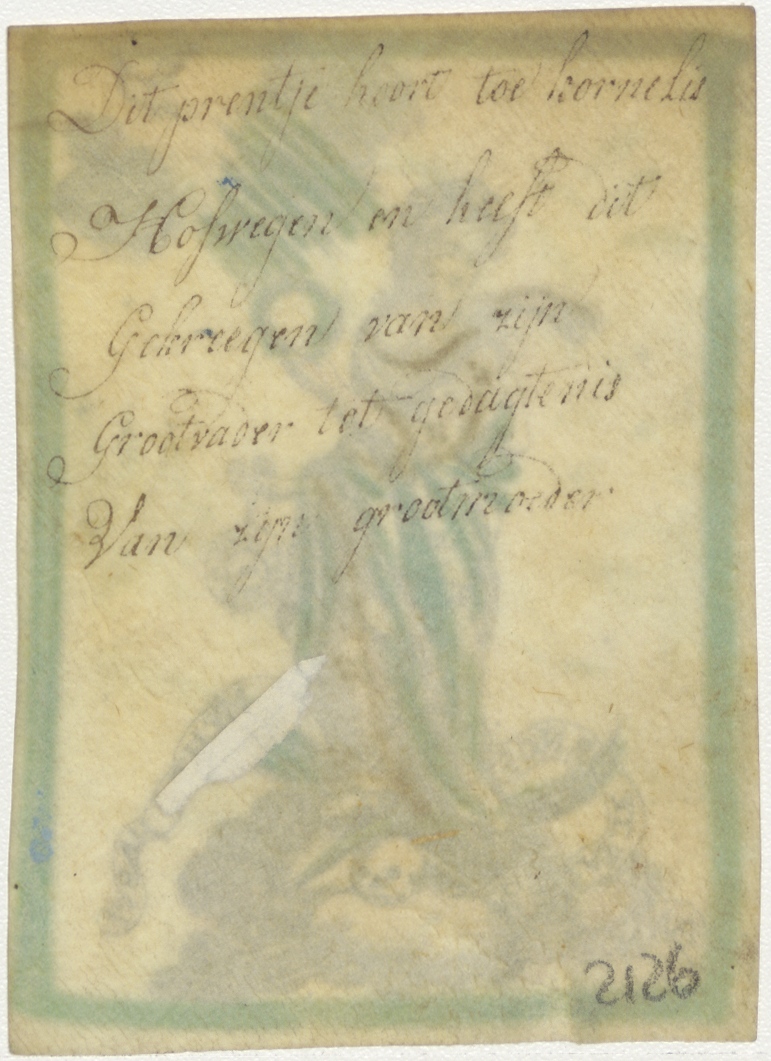 Dit prentje hoort toe kornelis
Hofwegen en heeft dit
Gekreegen van zijn
Grootvader tot gedagtenis
Van zijn grootmoeder
2126